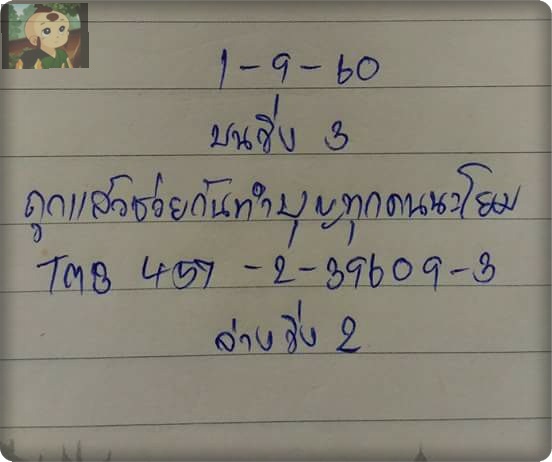 1-9-60
บนวิ่ง 3
ถูกแล้วช่วยกันทำบุญทุกคนนะโยม
โทร 457-2-39609-3
ล่างวิ่ง 2